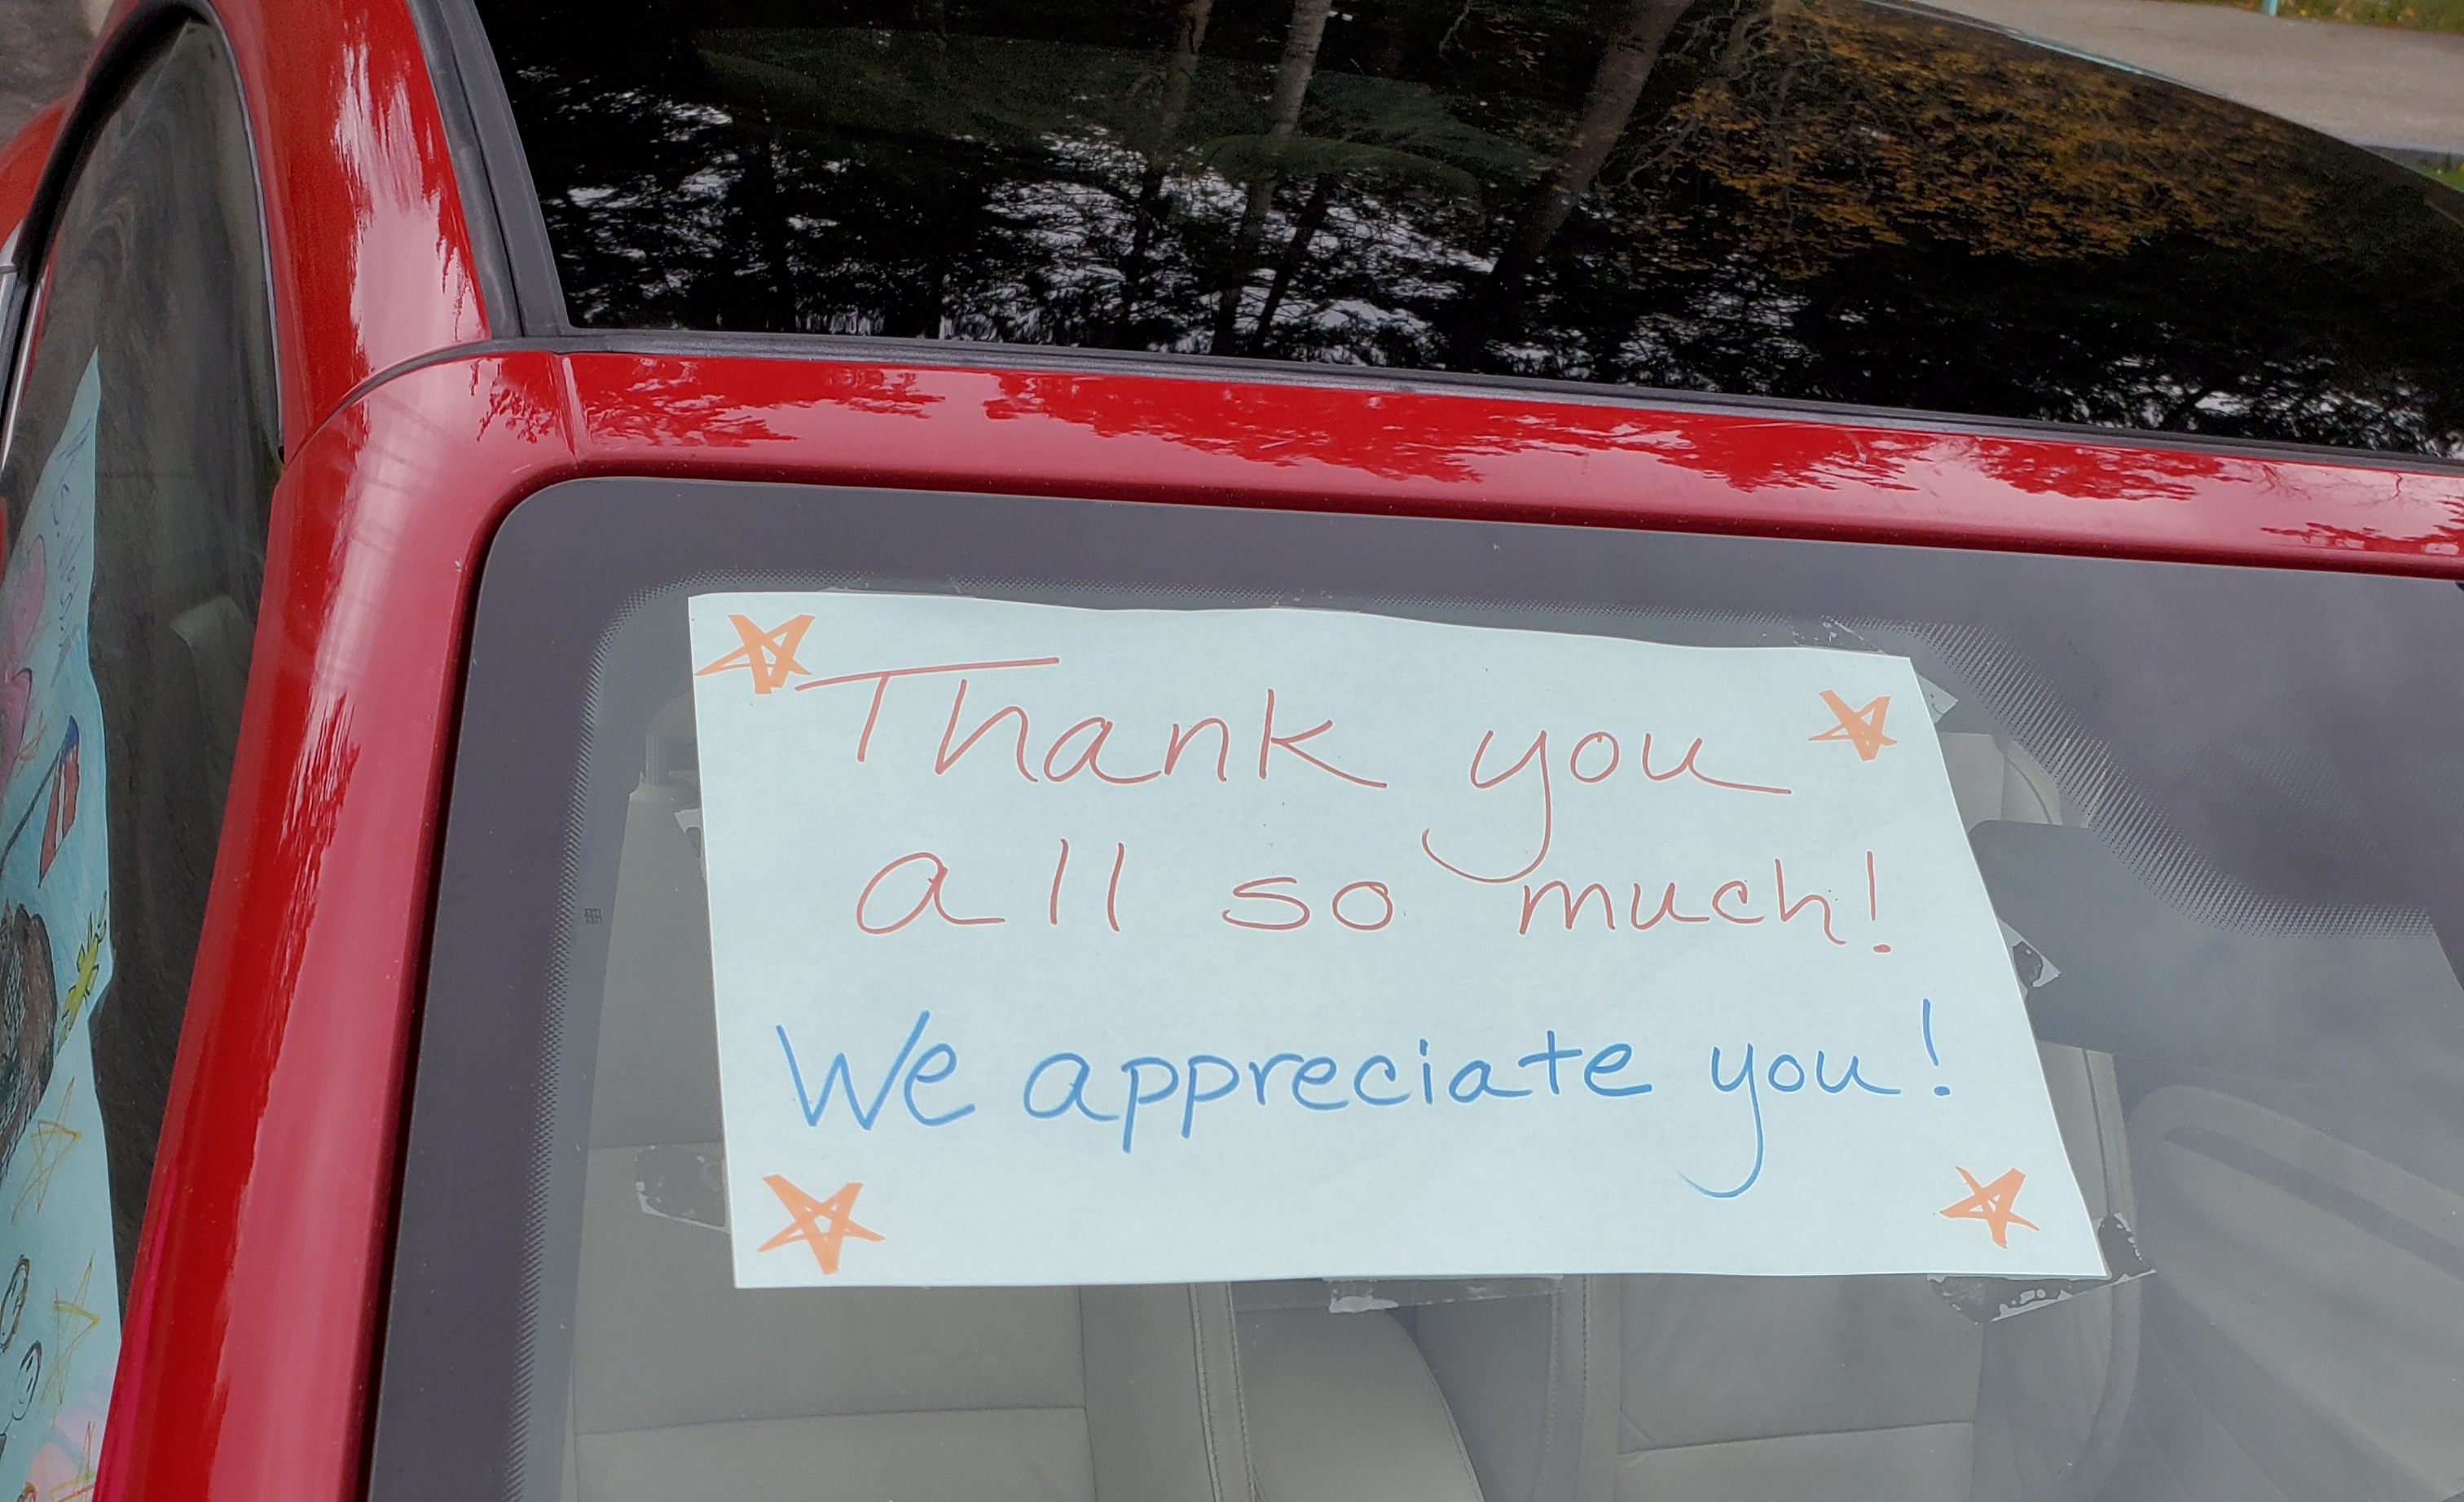 Thank you
all so much!
We appreciate you!